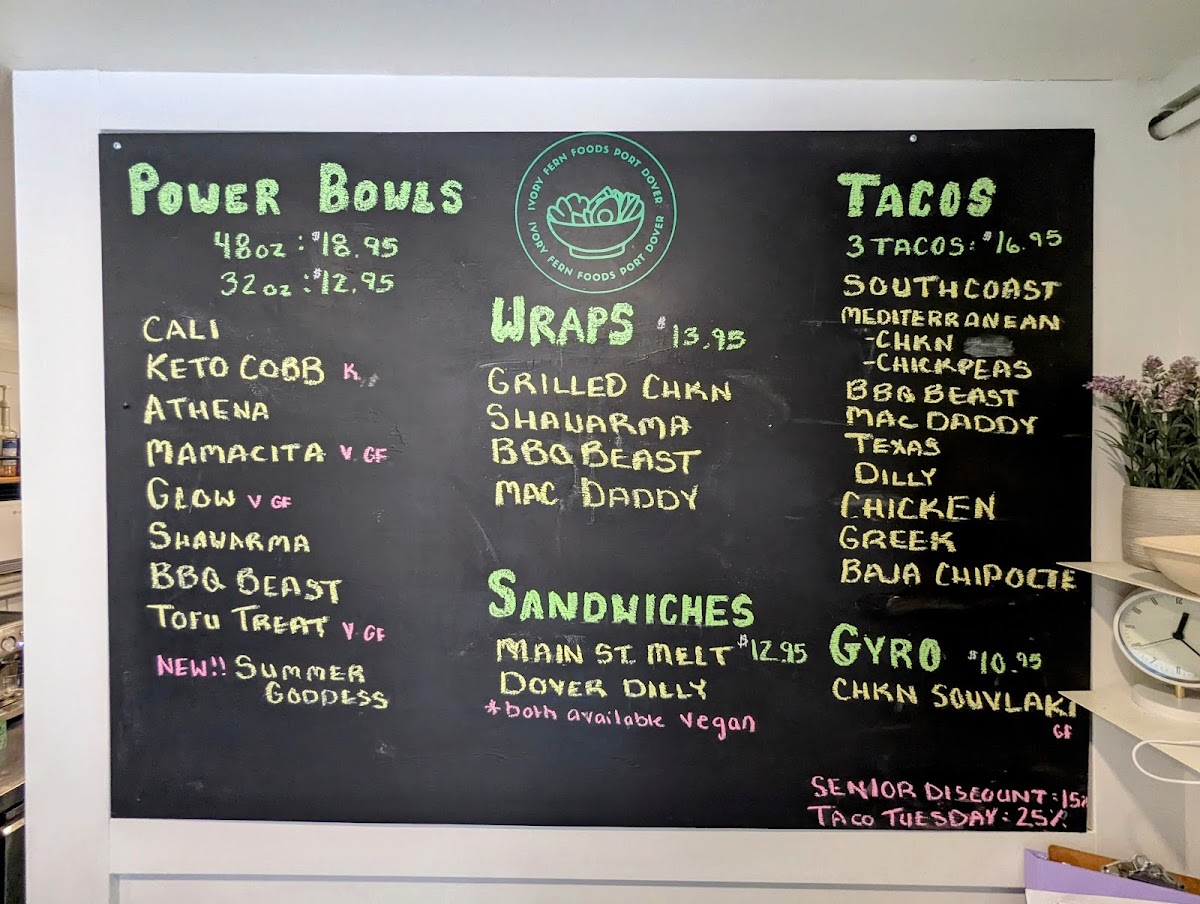 POWER BOWLS
48oz : $18.95
32oz : $12.95
CALI
KETO COBB K
ATHENA
MAMACITA V GF
GLOW V GF
SHAWARMA
BBQ BEAST
TOFU TREAT V GF
NEW!! SUMMER
GODDESS
IVORY FERN FOODS PORT DOVER
IVORY FERN FOODS PORT DOVER
WRAPS $13.95
GRILLED CHKN
SHAWARMA
BBQ BEAST
MAC DADDY
SANDWICHES
MAIN ST. MELT $12.95
DOVER DILLY
*both available vegan
TACOS
3 TACOS: $16.95
SOUTHCOAST
MEDITERRANEAN
-CHKN
-CHICKPEAS
BBQ BEAST
MAC DADDY
TEXAS
DILLY
CHICKEN
GREEK
BAJA CHIPOLTE
GYRO $10.95
CHKN SOUVLAKI
GF
SENIOR DISCOUNT: 15%
TACO TUESDAY: 25%